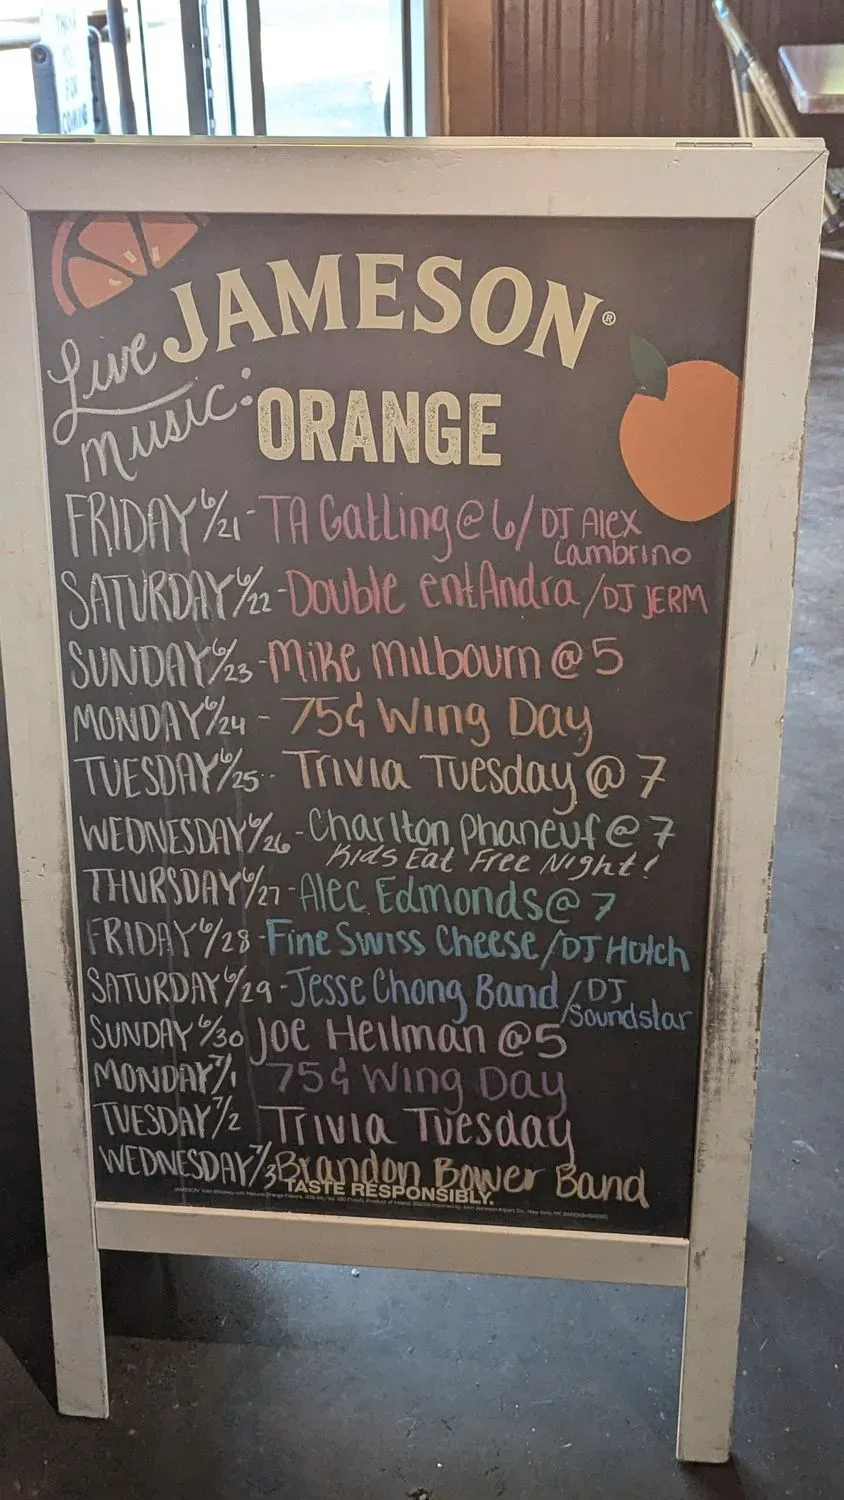 JAMESON®
ORANGE
Live
Music:
FRIDAY 6/21 - TA Gatling @ 6 / DJ Alex
Lambrino
SATURDAY 6/22 - Double entAndra / DJ JERM
SUNDAY 6/23 - Mike Milbourn @ 5
MONDAY 6/24 - 75¢ Wing Day
TUESDAY 6/25 - Trivia Tuesday @ 7
WEDNESDAY 6/26 - Charlton Phaneuf @ 7
Kids Eat Free Night!
THURSDAY 6/27 - Alec Edmonds @ 7
FRIDAY 6/28 - Fine Swiss Cheese / DJ Hutch
SATURDAY 6/29 - Jesse Chong Band / DJ
Soundstar
SUNDAY 6/30 Joe Heilman @ 5
MONDAY 7/1 75¢ Wing Day
TUESDAY 7/2 Trivia Tuesday
WEDNESDAY 7/3 Brandon Bower Band
TASTE RESPONSIBLY.